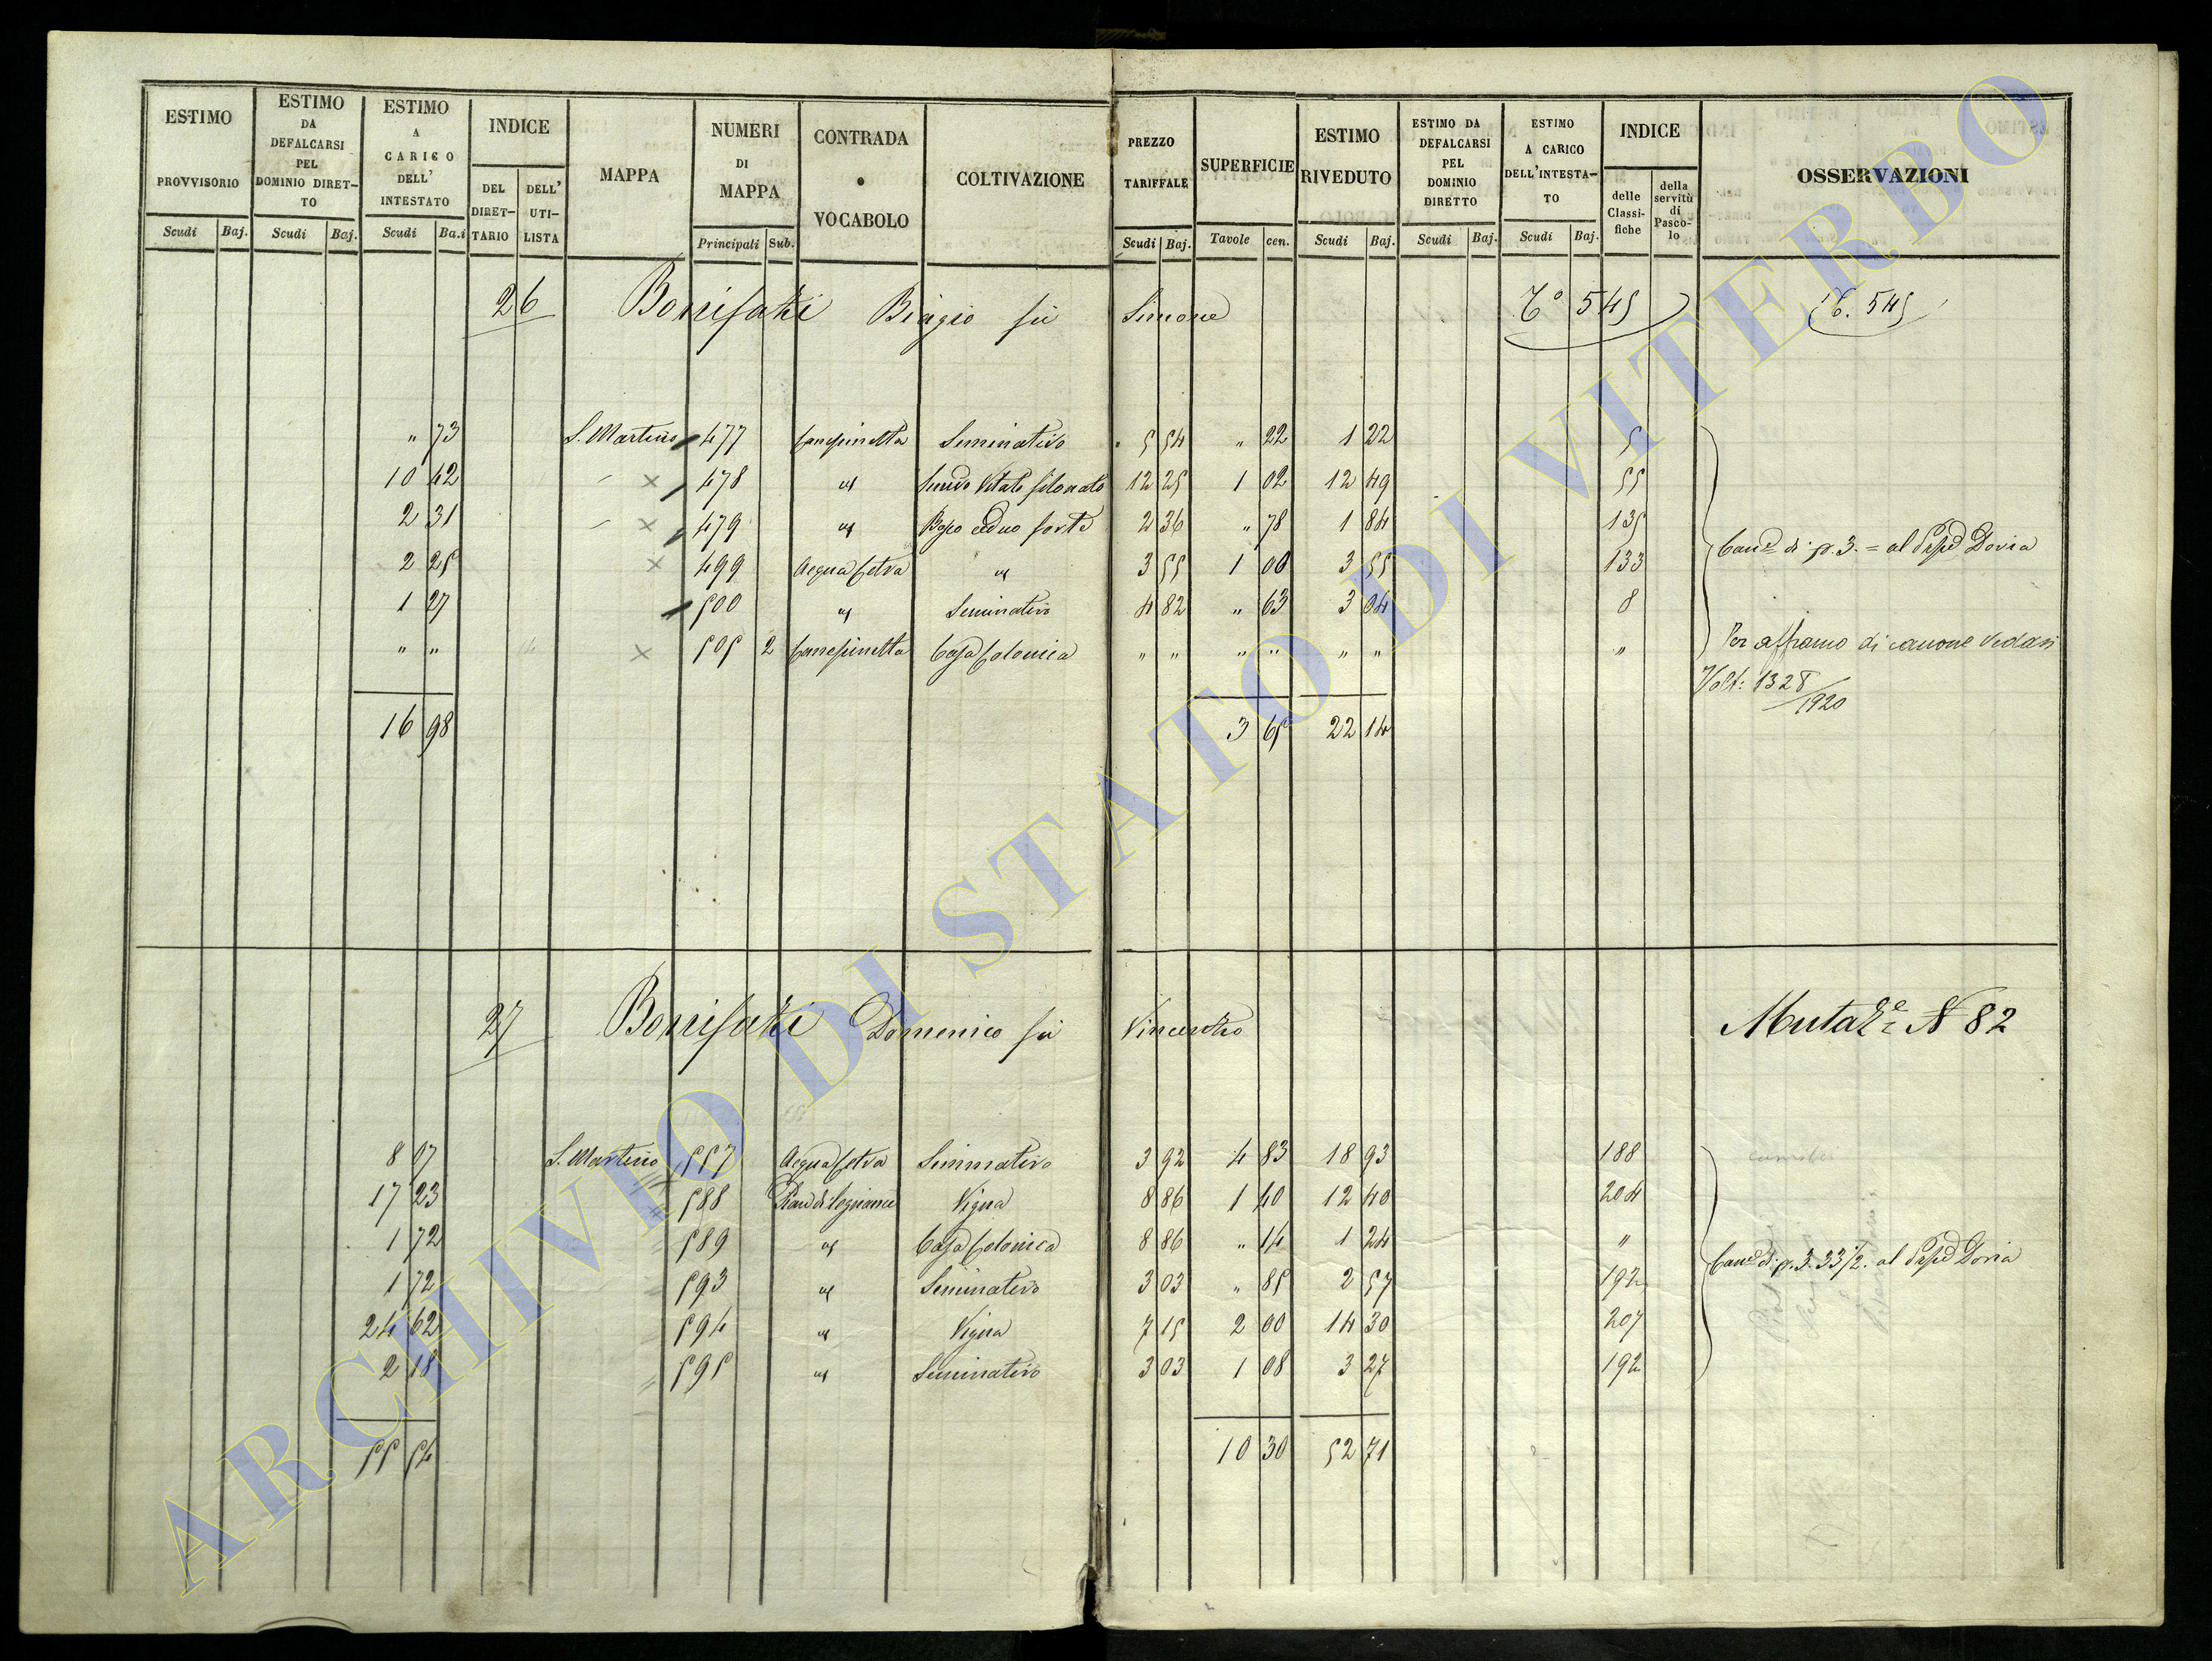 ESTIMO PROVVISORIO Scudi Baj.
ESTIMO DA DEFALCARSI PEL DOMINIO DIRET-TO Scudi Baj.
ESTIMO A CARICO DELL' INTESTATO Scudi Ba.i
INDICE DEL DIRET-TARIO DELL' UTI-LISTA
MAPPA
NUMERI DI MAPPA Principali Sub.
CONTRADA o VOCABOLO
COLTIVAZIONE
PREZZO TARIFFALE Scudi Baj.
SUPERFICIE Tavole cen.
ESTIMO RIVEDUTO Scudi Baj.
ESTIMO DA DEFALCARSI PEL DOMINIO DIRETTO Scudi Baj.
ESTIMO A CARICO DELL'INTESTA-TO Scudi Baj.
INDICE delle Classi-fiche della servitù di Pasco-lo
OSSERVAZIONI
26 Bonifazi Biagio fù Simone T° 545 T. 545
" 73 S. Martino 477 Canepinetta Seminativo 5 54 " 22 1 22 5
10 42 478 id Vitato 12 25 1 02 12 49 55
2 31 479 id Bosco ceduo forte 2 36 " 78 1 84 135
2 25 499 Acqua Cetra id 3 55 1 00 3 55 133
1 27 500 id Seminativo 4 82 " 63 3 04 8
" " 505 2 Canepinetta Casa Colonica " " " " " " "
Can.e di p. 3. = al Doria
Per affranco di canone vedasi
Volt: 1328/1920
16 98 3 65 22 14
27 Bonifazi Domenico fù Vincenzo Mutaz.e N 82
8 07 S. Martino 557 Acqua Cetra Seminativo 3 92 4 83 18 93 188
17 23 588 Vigna 8 86 1 40 12 40 204
1 72 589 id Casa Colonica 8 86 " 14 1 24 "
1 72 593 id Seminativo 3 03 " 85 2 57 192
24 62 594 id Vigna 7 15 2 00 14 30 207
2 18 595 id Seminativo 3 03 1 08 3 27 192
Can.e di p. 3. 33 1/2. al Doria
55 54 10 30 52 71
ARCHIVIO DI STATO DI VITERBO